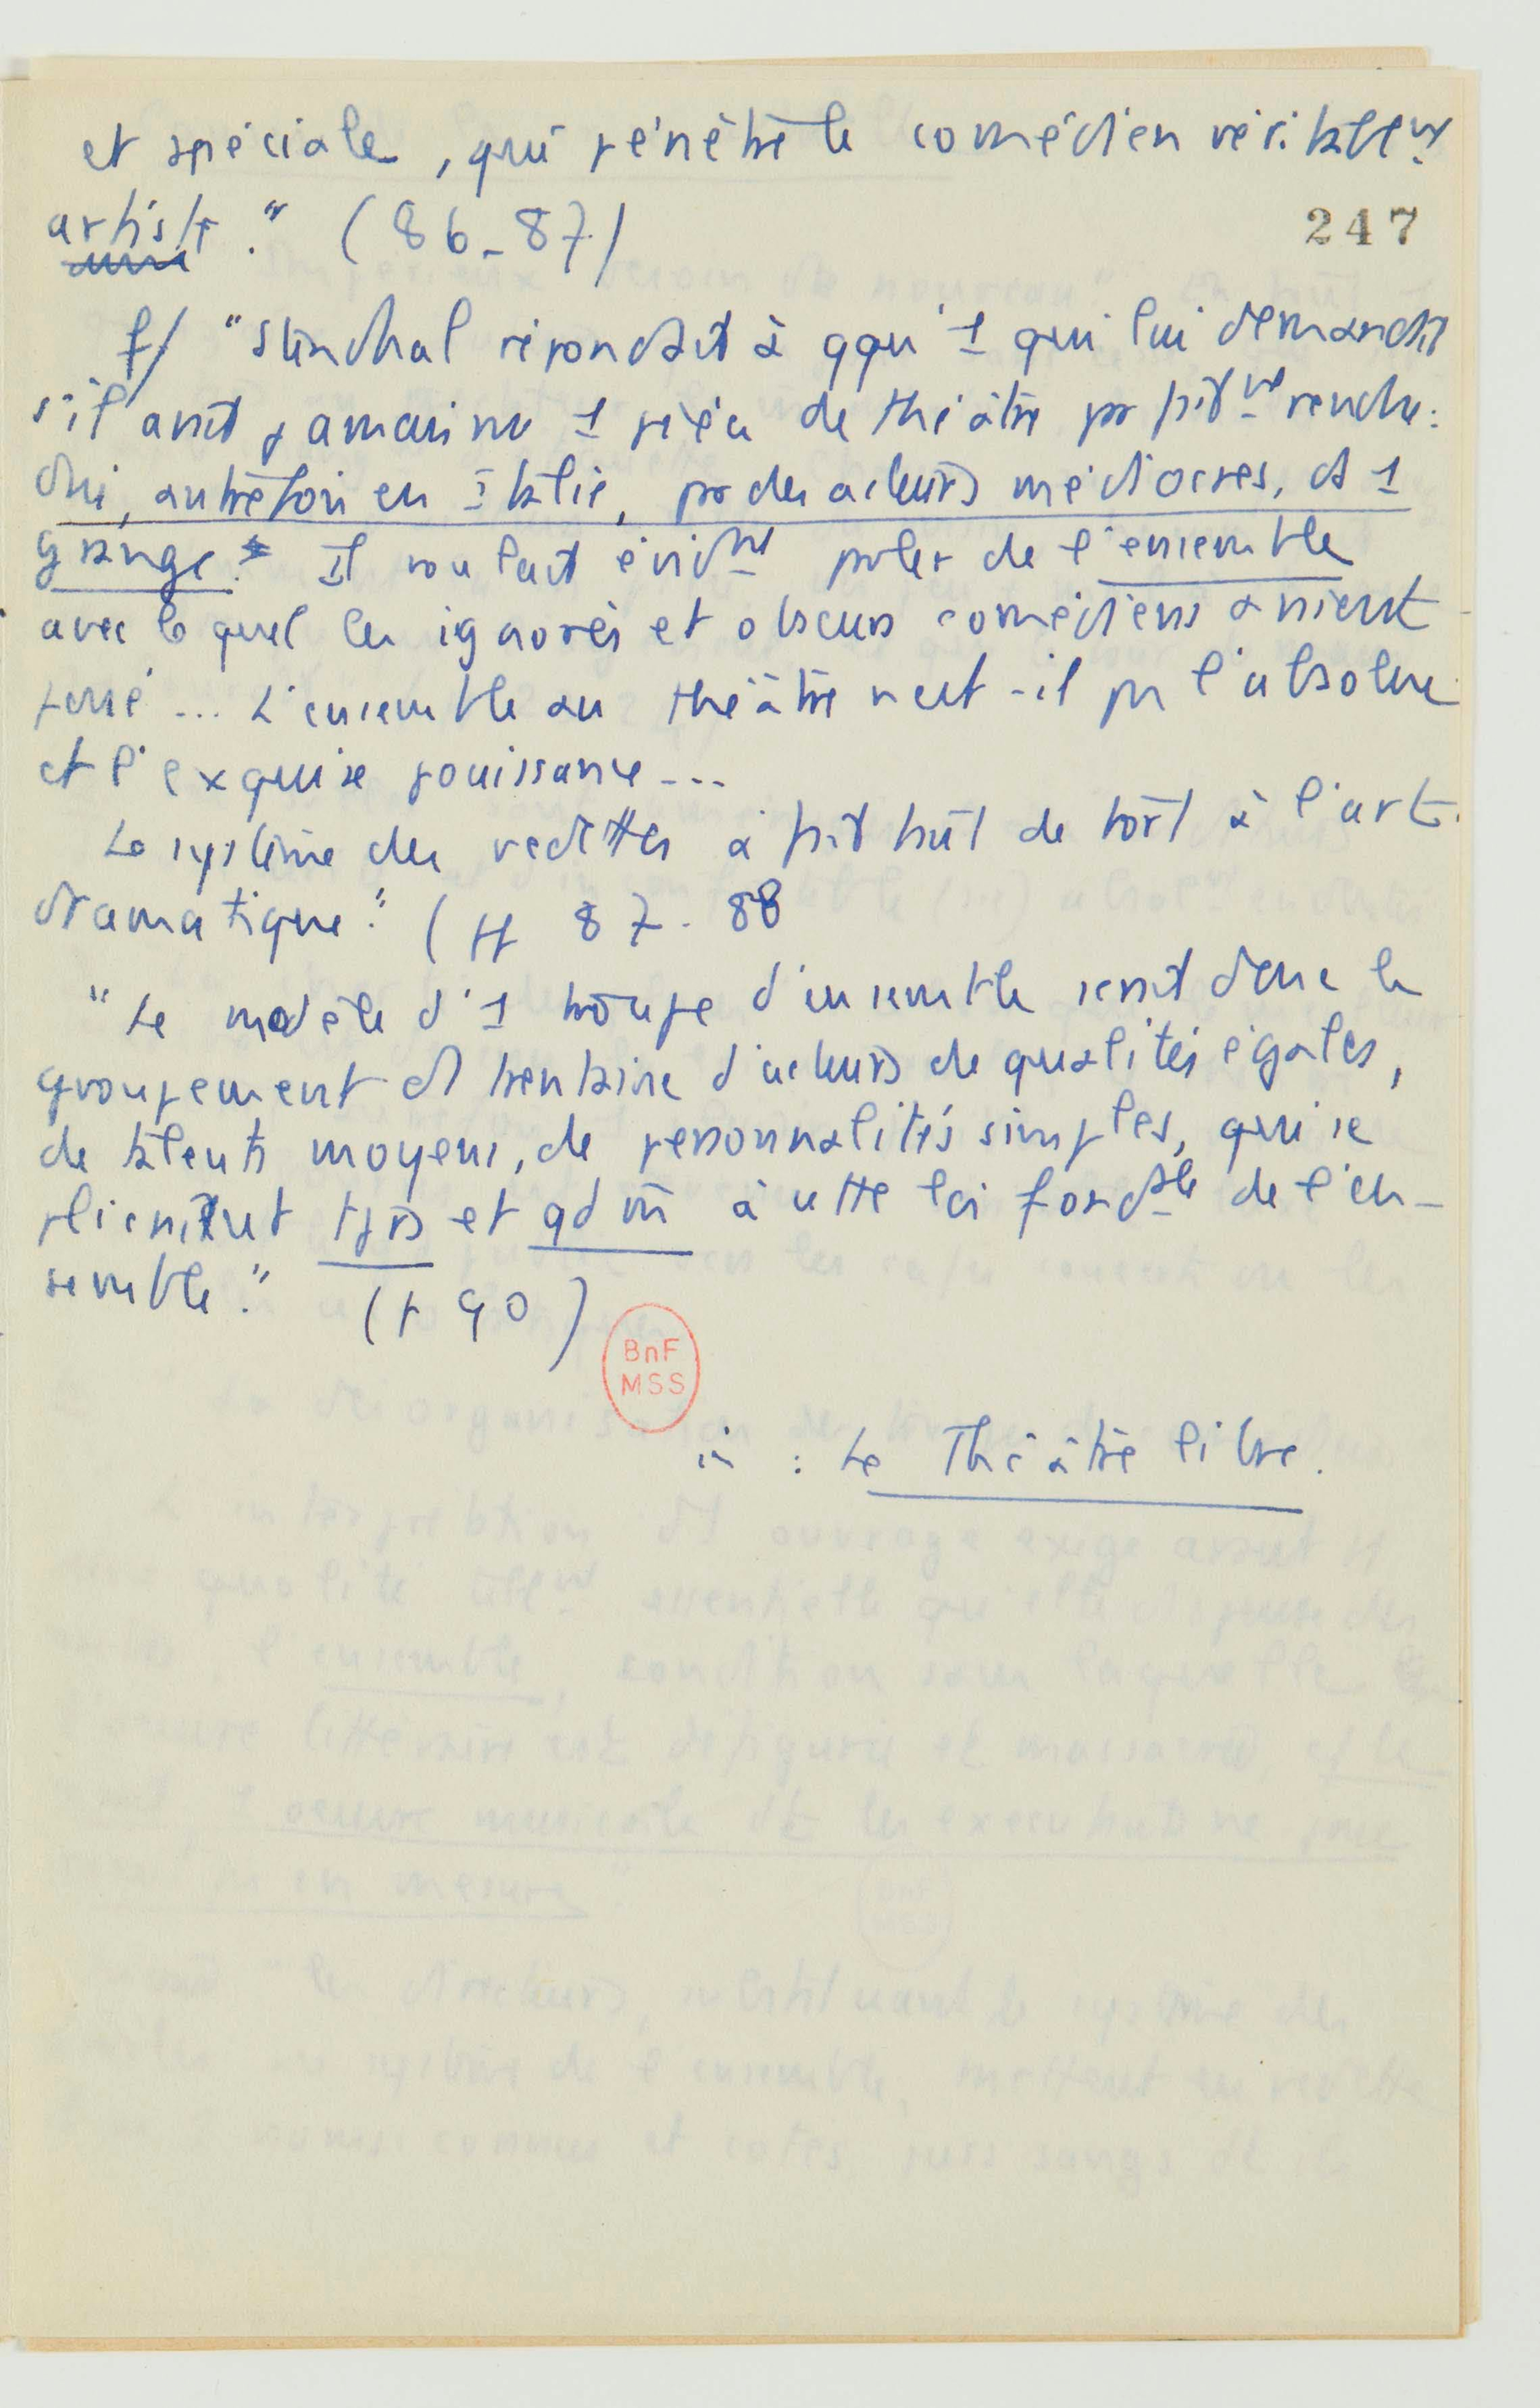 et spéciale, qui pénètre le comédien véritablemt
artiste." (86-87)
247
f/ "Stendhal répondait à qqu'1 qui lui demandait
s'il avait jamais vu 1 pièce de théâtre parfaitmt rendue :
Oui, autrefois en Italie, par des acteurs médiocres, ds 1
grange. Il voulait évidmt parler de l'ensemble
avec lequel les ignorés et obscurs comédiens avaient
joué... L'ensemble au théâtre n'est-il pas l'absolue
et l'exquise jouissance...
Le système des vedettes a fait trt de tort à l'art
dramatique." (pp 87-88
"Le modèle d'1 troupe d'ensemble serait donc le
groupement d'1 trentaine d'acteurs de qualités égales,
de talents moyens, de personnalités simples, qui se
plieraient tjrs et qd m̄ à cette loi fondale de l'en-
semble." (p 90)
BnF
MSS
in : Le Théâtre libre.